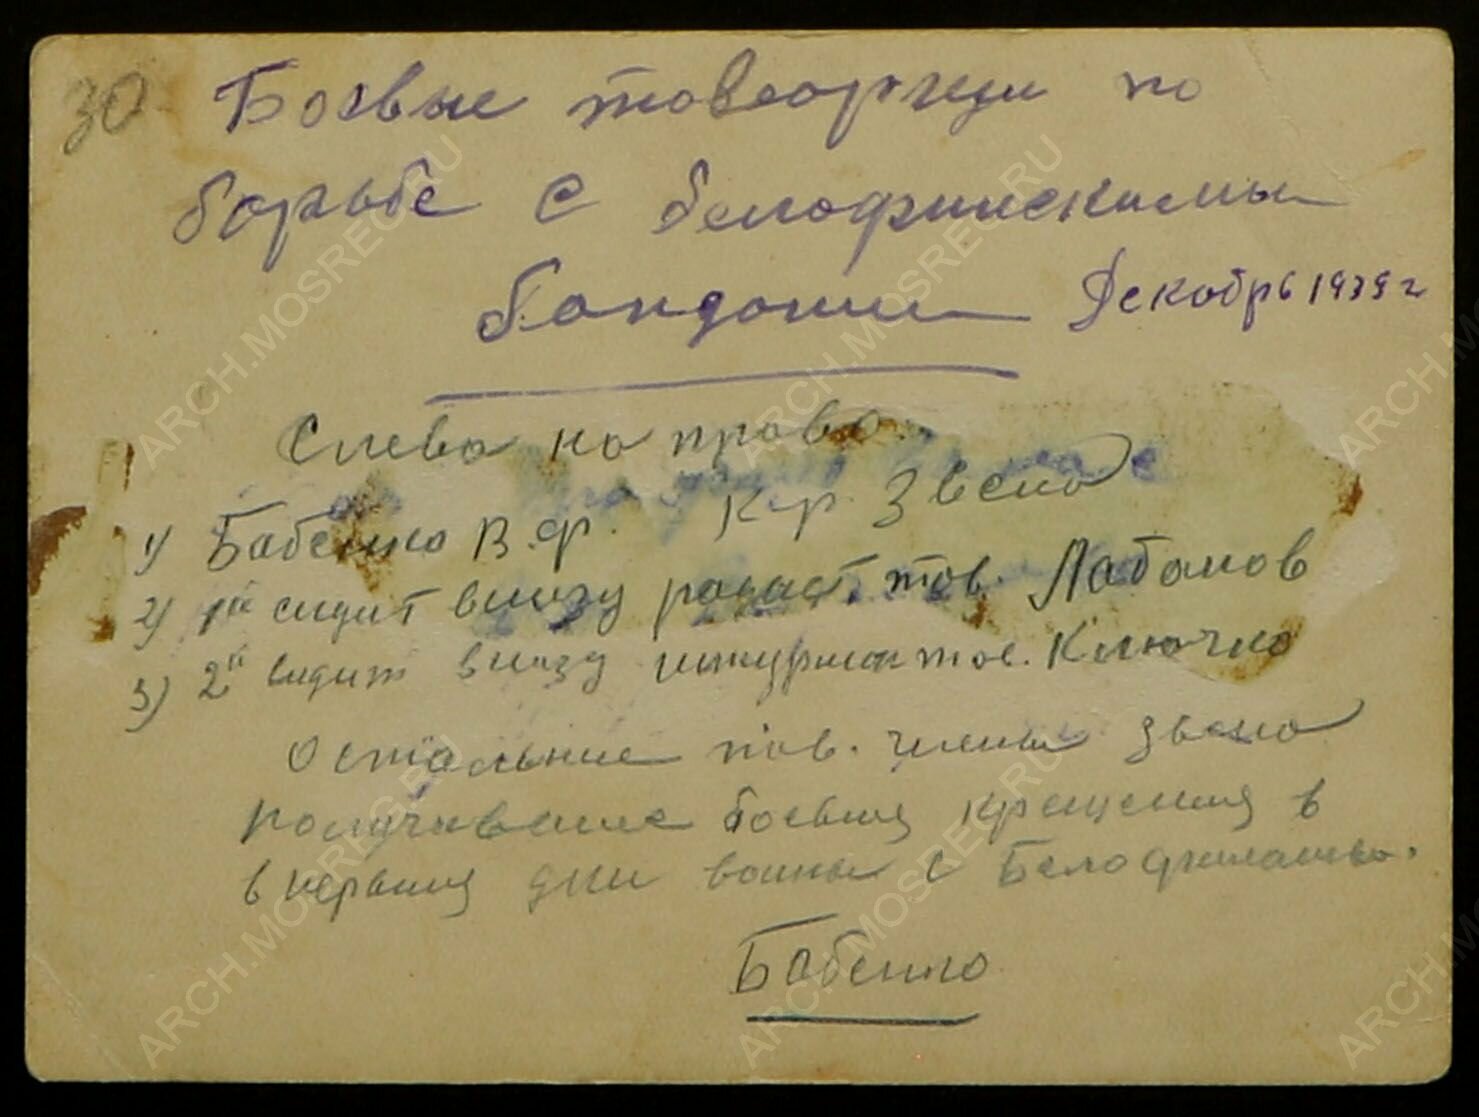 30 Боевые товарищи по
борьбе с белофинскими
бандами Декабрь 1939 г
Слева на право
1) Бабенко В.Ф. к-р. Звена
2) 1й сидит внизу радист тов. Лабанов
3) 2й сидит внизу штурман тов. Ключко
Остальные тов. члены звена
получившие боевыя крещения в
в первыя дни войны с Белофинами.
Бабенко
ARCH.MOSREG.RU